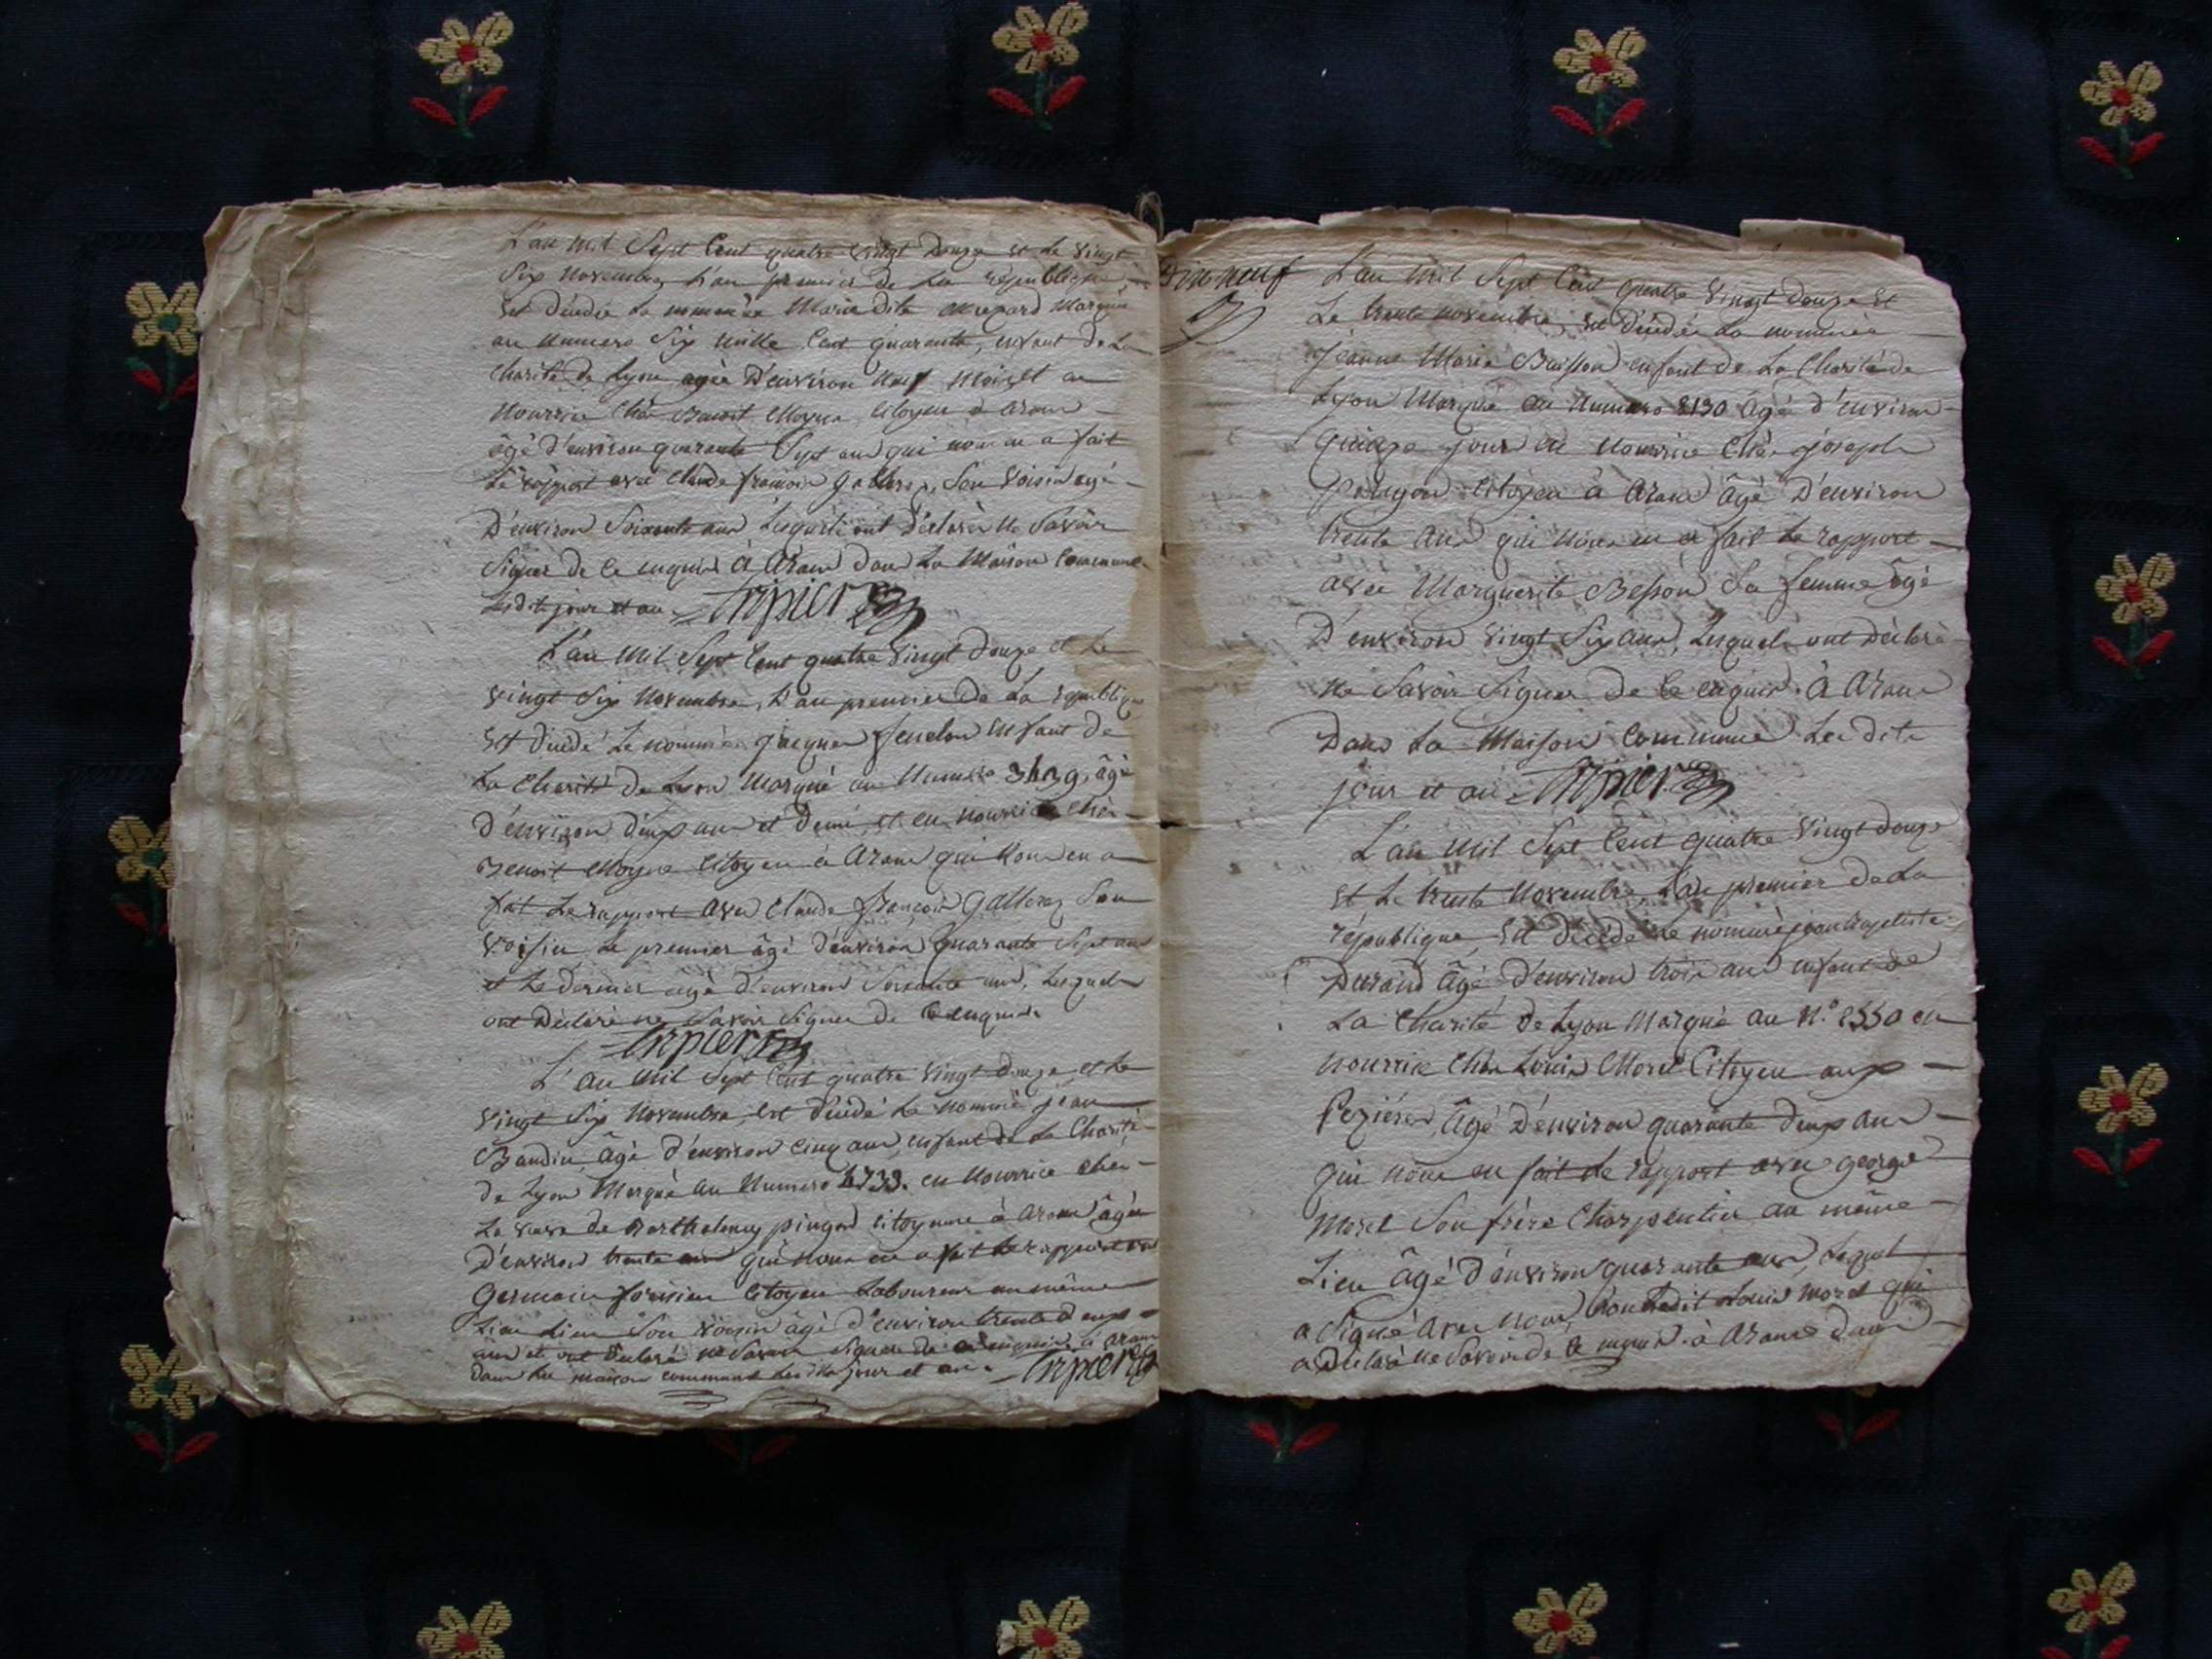 L'an mil Sept Cent quatre vingt Douze et Le vingt
Six Novembre, L'an premier De La république
Est Décédée La nommée Marie Dite Marquée
au Numero Six mille Cent quarante, enfant De La
Charité De Lyon agée D'environ Neuf Mois et en
Nourrice Chés Benoit Moyne Citoyen à Aran
âgé D'environ quarante Sept ans qui nous en a fait
Le rapport avec Claude françois Son Voisin agé
D'environ Soixante ans Lesquels ont Déclaré Ne Savoir
Signer De Ce enquis à Aran Dans La Maison Commune
Lesdits jour et an
L'an Mil Sept Cent quatre Vingt Douze et Le
vingt Six Novembre, L'an premier De La république
Est Décédé Le nommé Jacques fenelon Enfant De
La Charité De Lyon Marqué au Numero âgé
D'environ Deux ans et Demi, et en nourrice Chés
Benoit Moyne Citoyen à Aran qui Nous en a
fait Le rapport avec Claude françois Son
Voisin Le premier âgé D'environ quarante Sept ans
et Le Dernier agé D'environ Soixante ans, Lesquels
ont Déclaré ne Savoir Signer De Ce enquis
L'an Mil Sept Cent quatre Vingt Douze, et Le
Vingt Six Novembre, Est Décédé Le Nommé jean
Baudin, âgé D'environ Cinq ans, enfant De La Charité
De Lyon Marqué au Numero 4739. en Nourrice Chés
La veuve De Barthelemy pingod Citoyenne à Aran âgée
D'environ trente ans qui Nous en a fait Le rapport avec
Germain Citoyen Laboureur au même
Lieu Son Voisin âgé D'environ trente Deux
ans et ont Déclaré ne Savoir Signer De Ce enquis à Aran
Dans La maison commune Lesdits jour et an
Dix neuf
L'an Mil Sept Cent quatre Vingt Douze et
Le trente novembre, Est Décédée La nommée
Jeanne Marie Buisson enfant De La Charité De
Lyon Marquée au Numero 8130 âgée D'environ
quinze jours en Nourrice Chés joseph
Citoyen à Aran âgé D'environ
trente Ans qui Nous en a fait Le rapport
avec Marguerite Besson Sa femme âgée
D'environ Vingt Six ans, Lesquels ont Déclaré
Ne Savoir Signer De Ce enquis. à Aran
Dans La Maison Commune Lesdits
jour et an
L'an Mil Sept Cent quatre Vingt Douze
et Le trente Novembre, L'an premier De La
république, Est Décédé Le nommé jean baptiste
Durand âgé D'environ trois ans enfant De
La Charité De Lyon Marqué au N.º 2550 en
nourrice Chés Louis Morel Citoyen aux
Pézières, âgé D'environ quarante Deux ans
qui Nous en fait Le rapport avec george
Morel Son frère Charpentier au même
Lieu âgé D'environ quarante ans, Lequel
a Signé avec Nous, Non Ledit Louis Morel qui
a Déclaré Ne Savoir De Ce enquis à Aran Dans